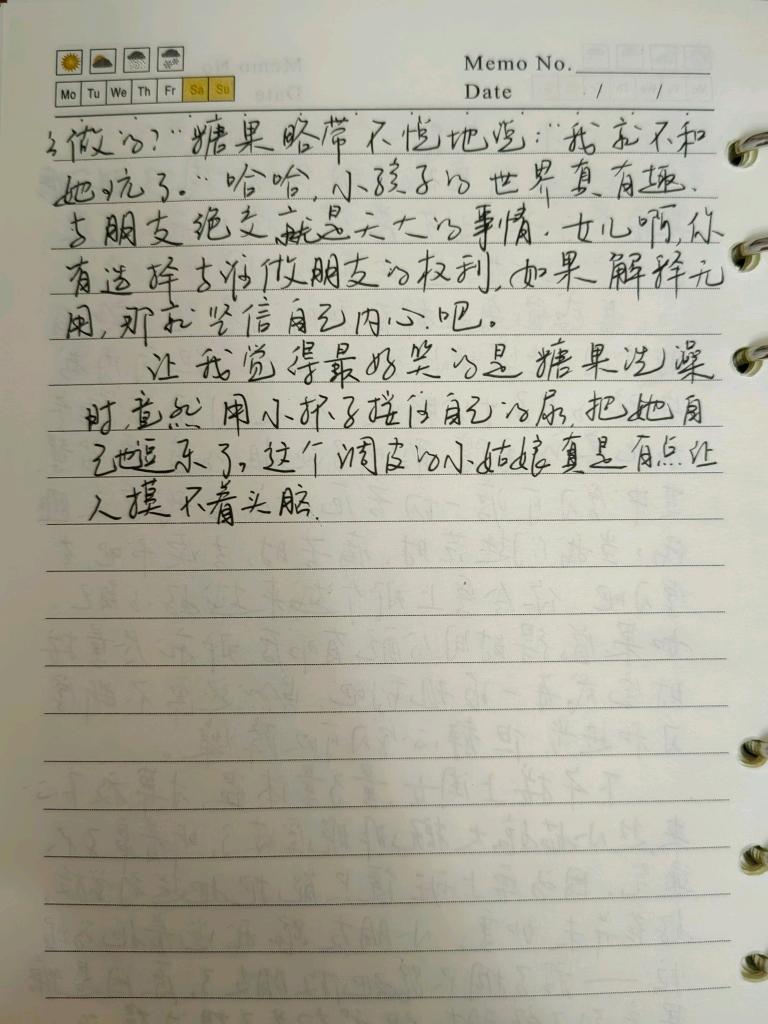 Memo No.
Mo Tu We Th Fr Sa Su
Date / /
么做的？"糖果略带不悦地说："我就不和
她玩了。"哈哈，小孩子的世界真有趣.
与朋友绝交就是天大的事情. 女儿啊，你
有选择与谁做朋友的权利，如果解释无
用，那就坚信自己内心吧。
让我觉得最好笑的是糖果洗澡
时，竟然用小杯子接住自己的尿，把她自
己逗乐了。这个调皮的小姑娘真是有点让
人摸不着头脑.